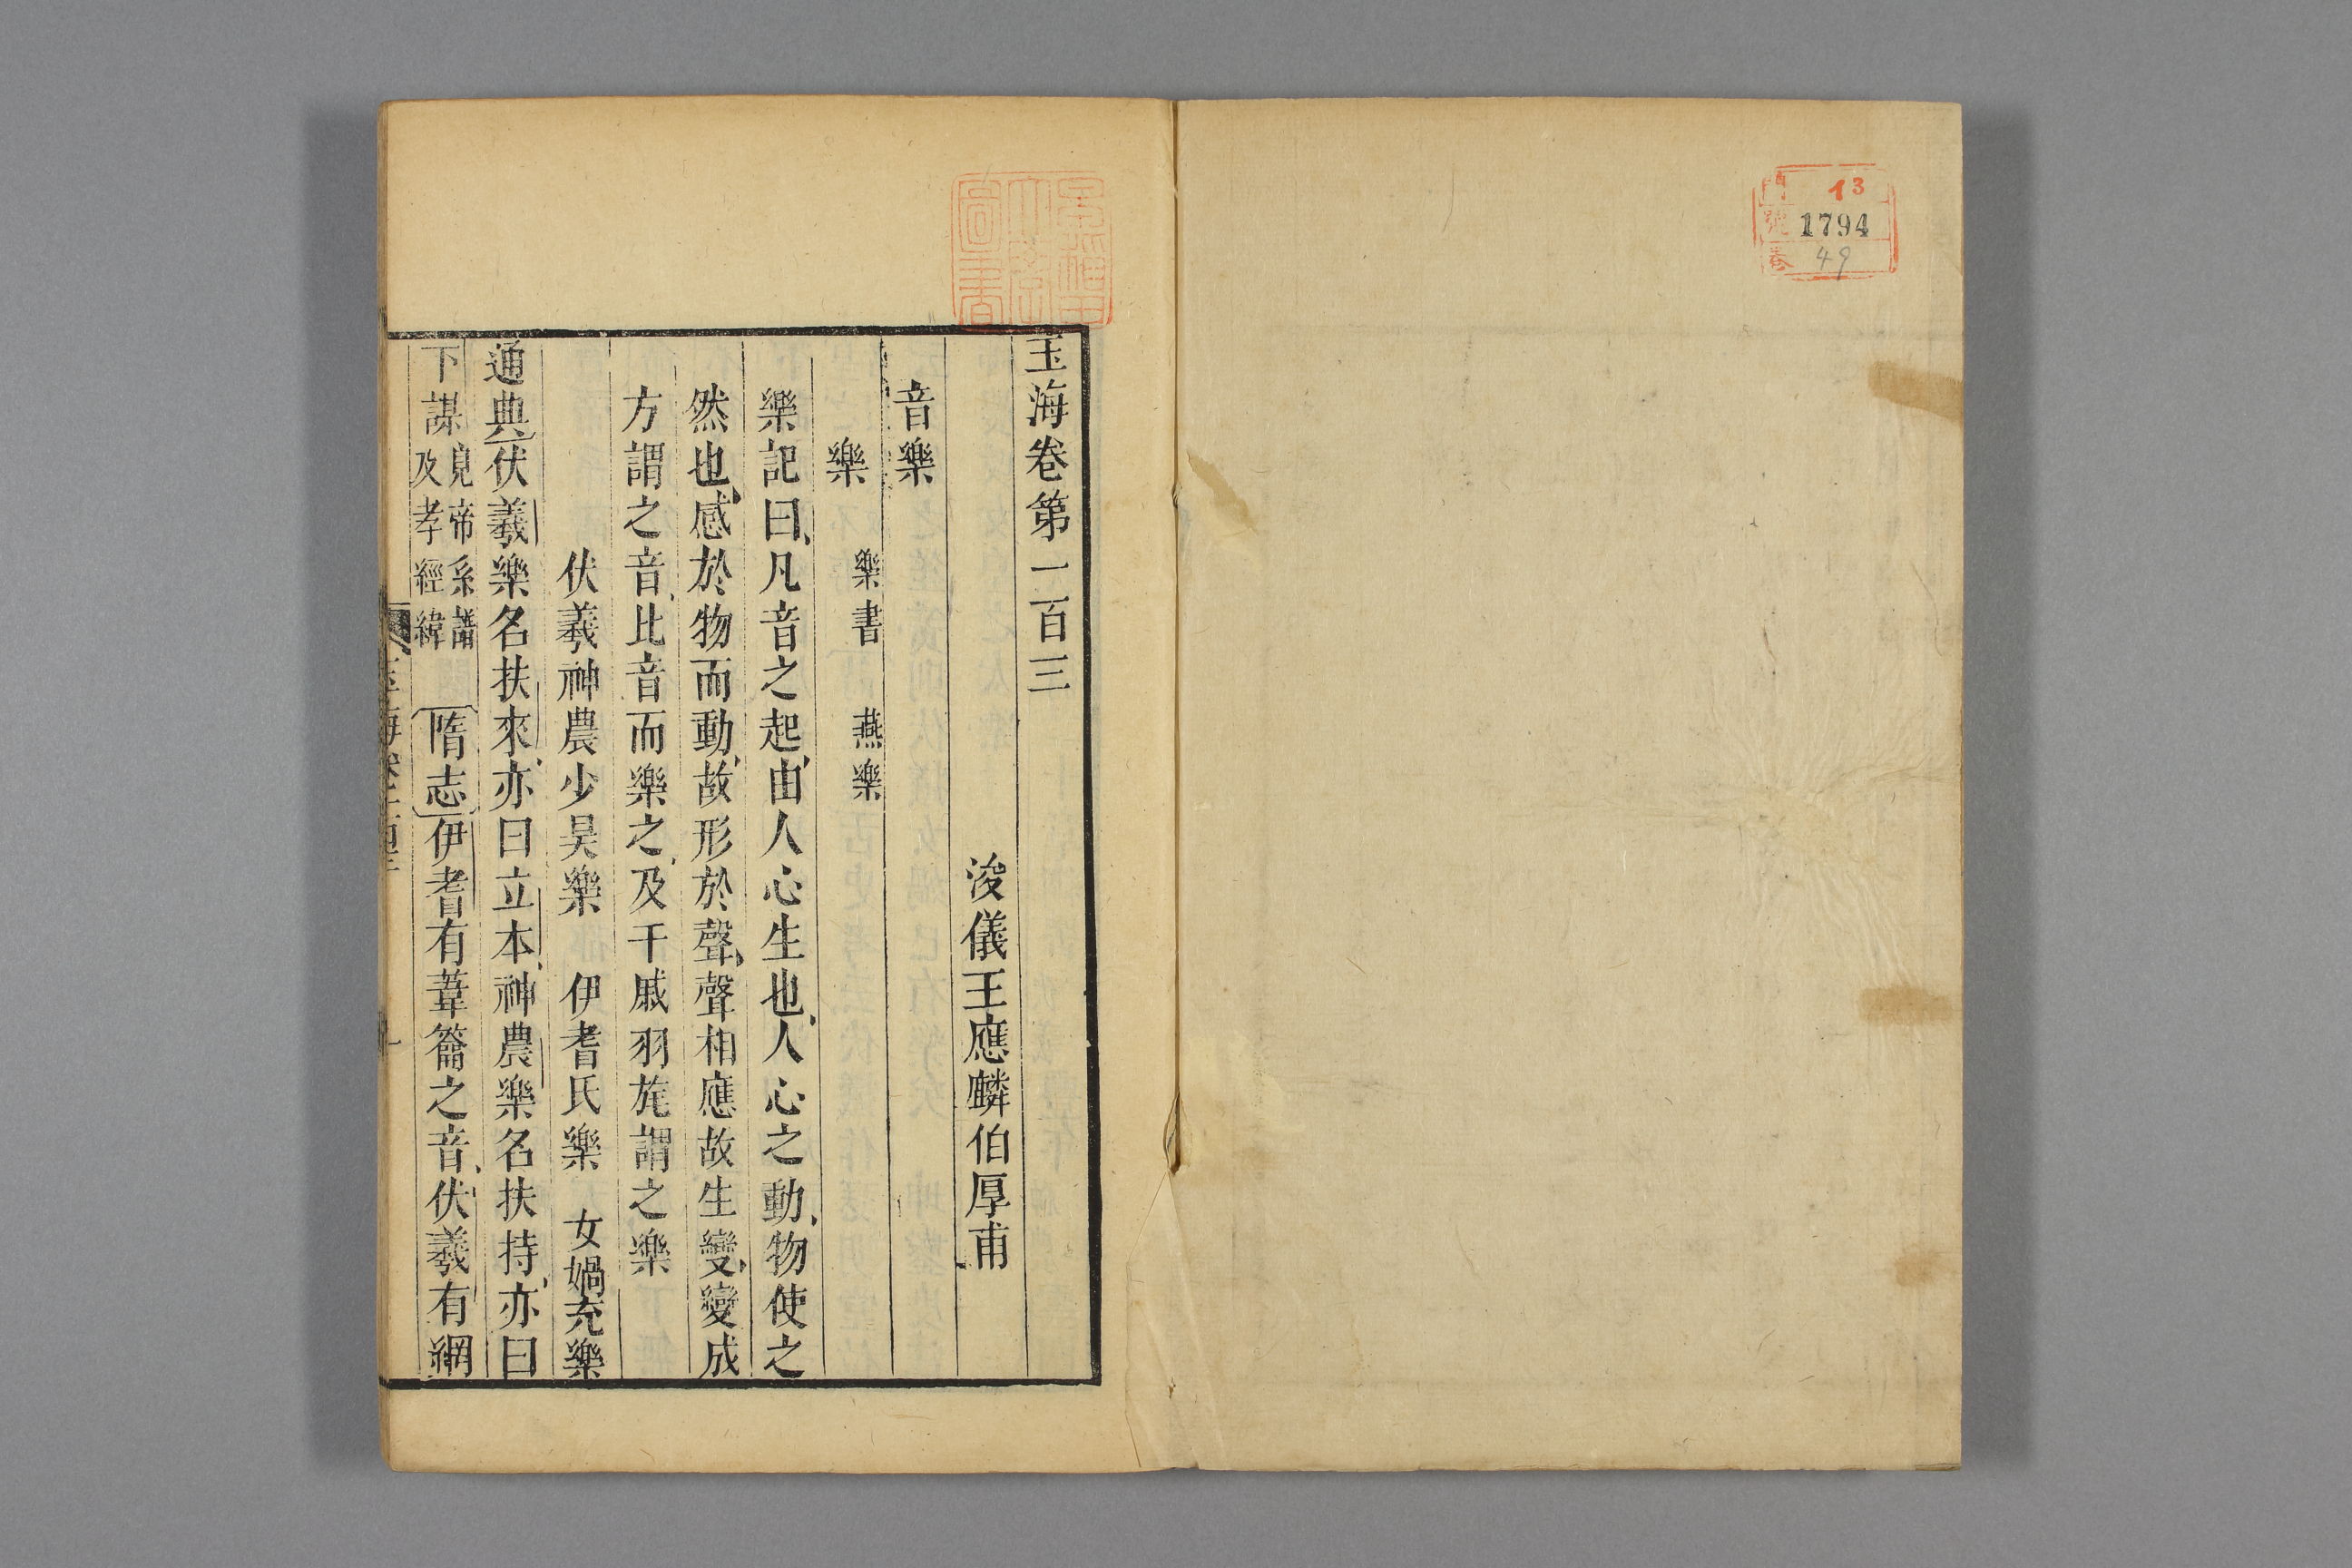 門 13
號 1794
卷 49
早稻田
大學
圖書
玉海卷第一百三
浚儀王應麟伯厚甫
音樂
樂 樂書 燕樂
樂記曰凡音之起由人心生也人心之動物使之
然也感於物而動故形於聲聲相應故生變變成
方謂之音比音而樂之及干戚羽旄謂之樂
伏羲神農少昊樂 伊耆氏樂 女媧充樂
通典伏羲樂名扶來亦曰立本神農樂名扶持亦曰
下謀見帝系譜及孝經緯 隋志伊耆有葦籥之音伏羲有網